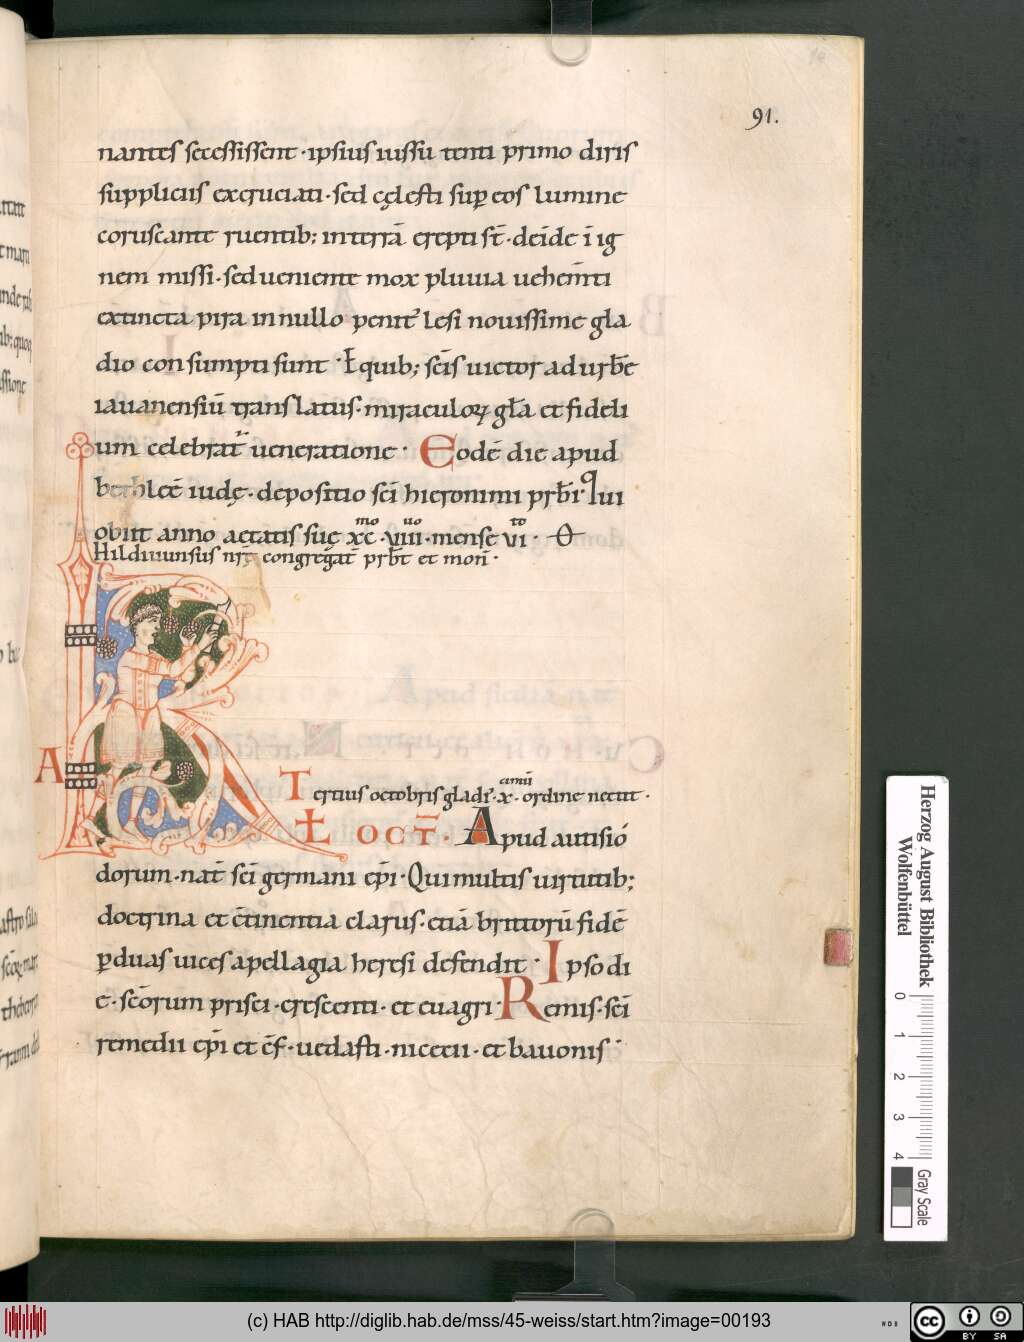 91.
nantes secessissent · ipsius iussu tenti primo diris
suppliciis excruciati · sed cęlesti sup̱ eos lumine
coruscante ruentib; in terrā erepti st̄ · deīde ī ig
nem missi · sed ueniente mox pluuia uehem̄ti
extincta pira in nullo penit᷒ lesi nouissime gla
dio consumpti sunt · E quib; sc̄is uictor ad urbē
iauanensiū translatus · miraculoꝝ gl̄a et fideli
um celebrat᷒ ueneratione · Eodē die apud
bethleē iudę · depositio sc̄i hieronimi prb̄i · Qui
obiit anno aetatis suę xc mo · viiii uo · mense vi to · 
Hildiuunsus nr̄ę congregat̄ prb̄t et mon̄ ·
A K
Tertius octobris gladi᷒ · x · ordine nectit · amū
OCT̄ · Apud autisió
dorum · nat̄ sc̄i germani ep̄i · Qui multis uirtutib;
doctrina et c̄tinentia clarus · etiā brittorū fidē
ꝑ duas uices a pellagia heresi defendit · Ipso di
e · sc̄orum prisci · crescenti · et euagri · Remis · sc̄i
remedii ep̄i et c̄f · uedasti · nicetii · et bauonis ·
Herzog August Bibliothek
Wolfenbüttel
0 1 2 3 4
Gray Scale
(c) HAB http://diglib.hab.de/mss/45-weiss/start.htm?image=00193
WDB
cc BY SA